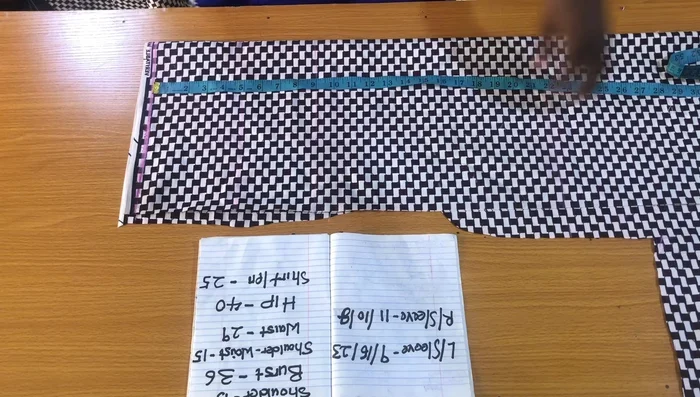 L/Sleeve - 9/16/23
R/Sleeve - 11/10/8
Shoulder - 15
Burst - 36
Shoulder-Waist - 15
Waist - 29
Hip - 40
Shirt len - 25
2 3 4 5 6 7 8 9 10 11 12 13 14 15 17 18 19 20 21 26 27 28 29